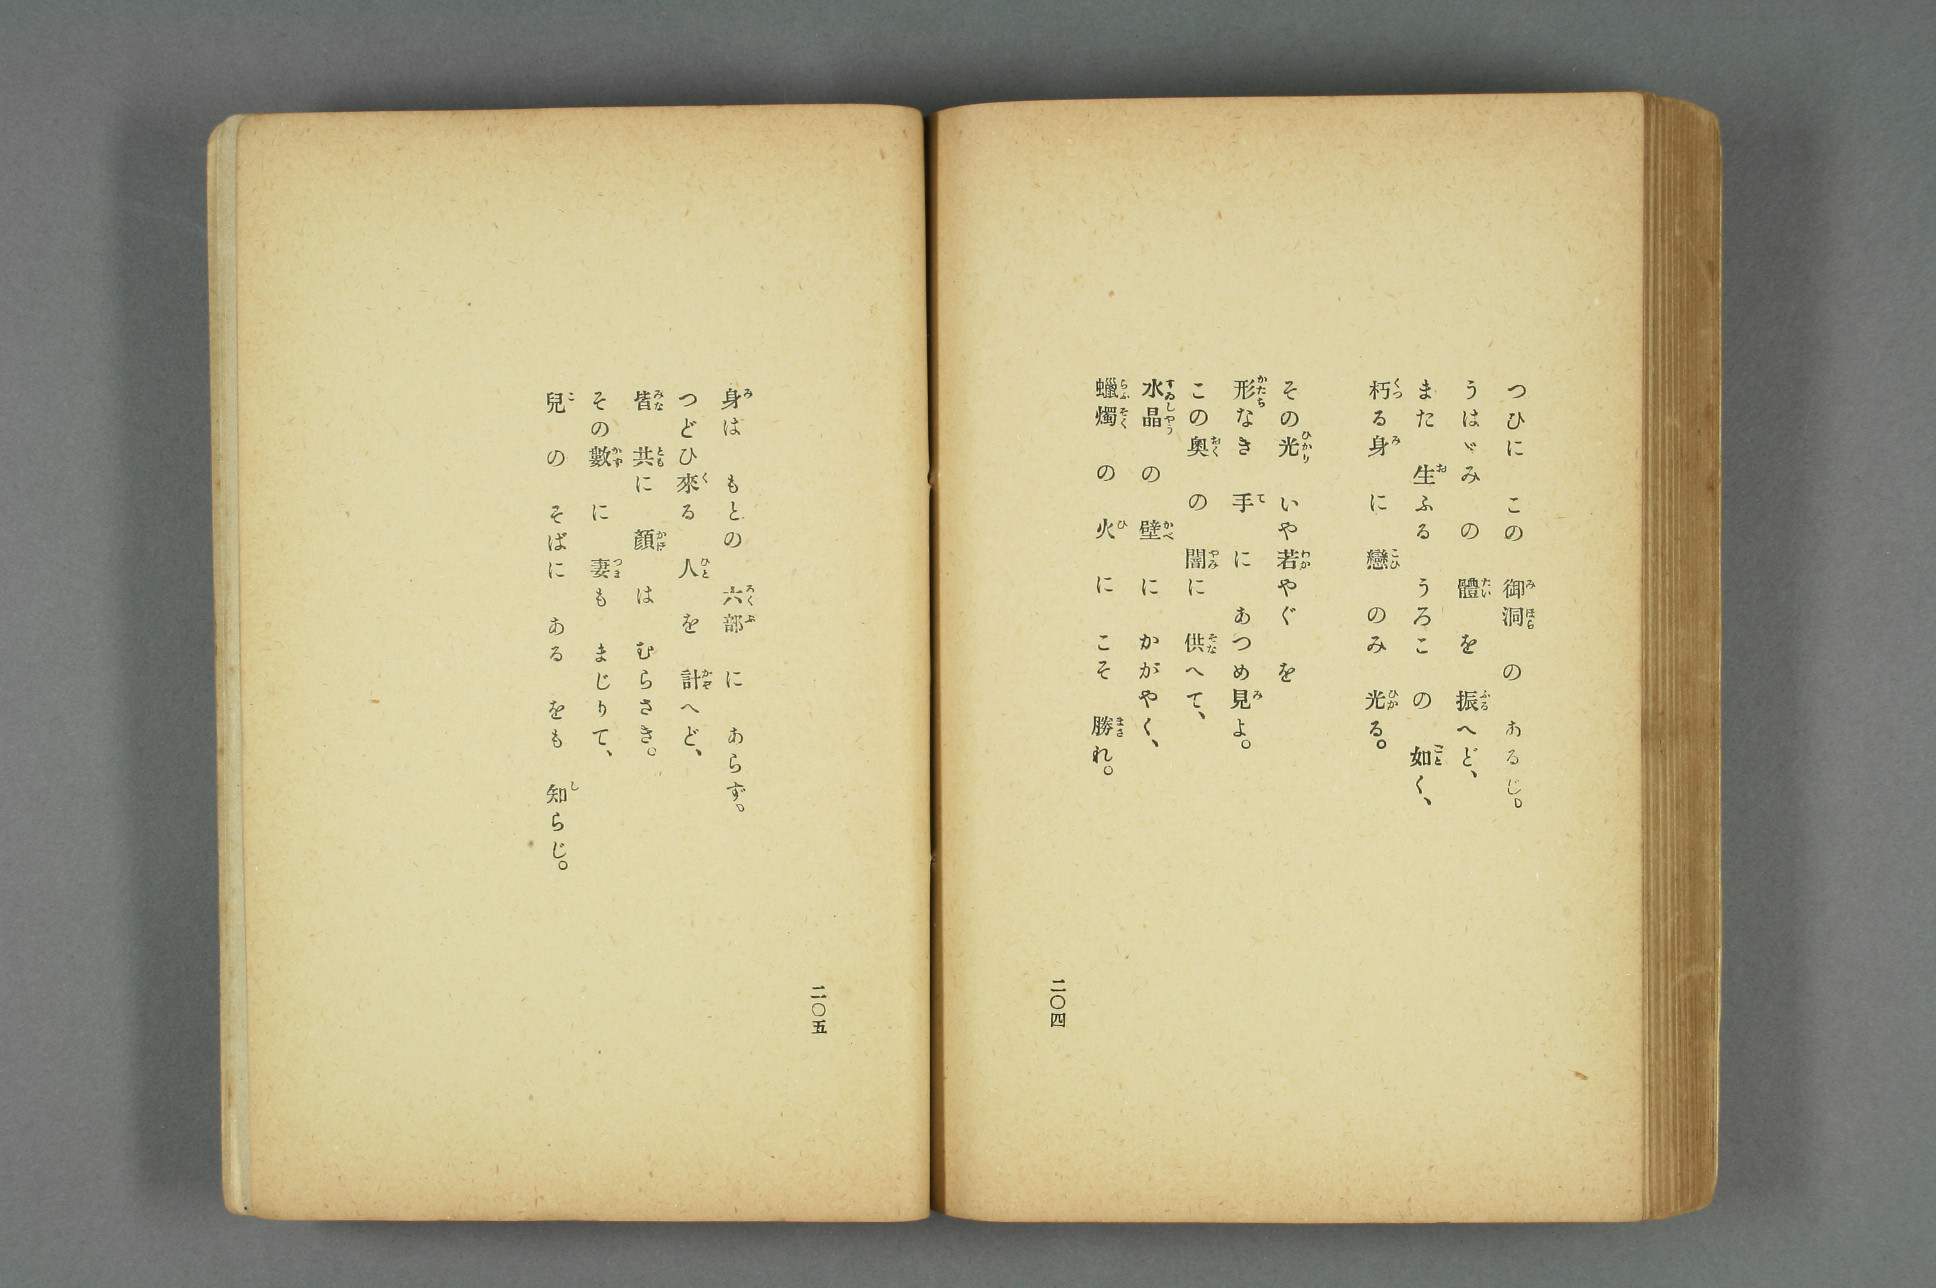 つひに この 御洞 の あるじ。
うはゞみ の 體 を 振へど、
また 生ふる うろこ の 如く、
朽る身 に 戀 のみ 光る。
その光 いや若やぐ を
形なき 手 に あつめ見よ。
この奧 の 闇に 供へて、
水晶 の 壁 に かがやく、
蠟燭 の 火 に こそ 勝れ。
二〇四
身は もとの 六部 に あらず。
つどひ來る 人 を 計へど、
皆 共に 顏 は むらさき。
その數 に 妻も まじりて、
兒 の そばに ある をも 知らじ。
二〇五